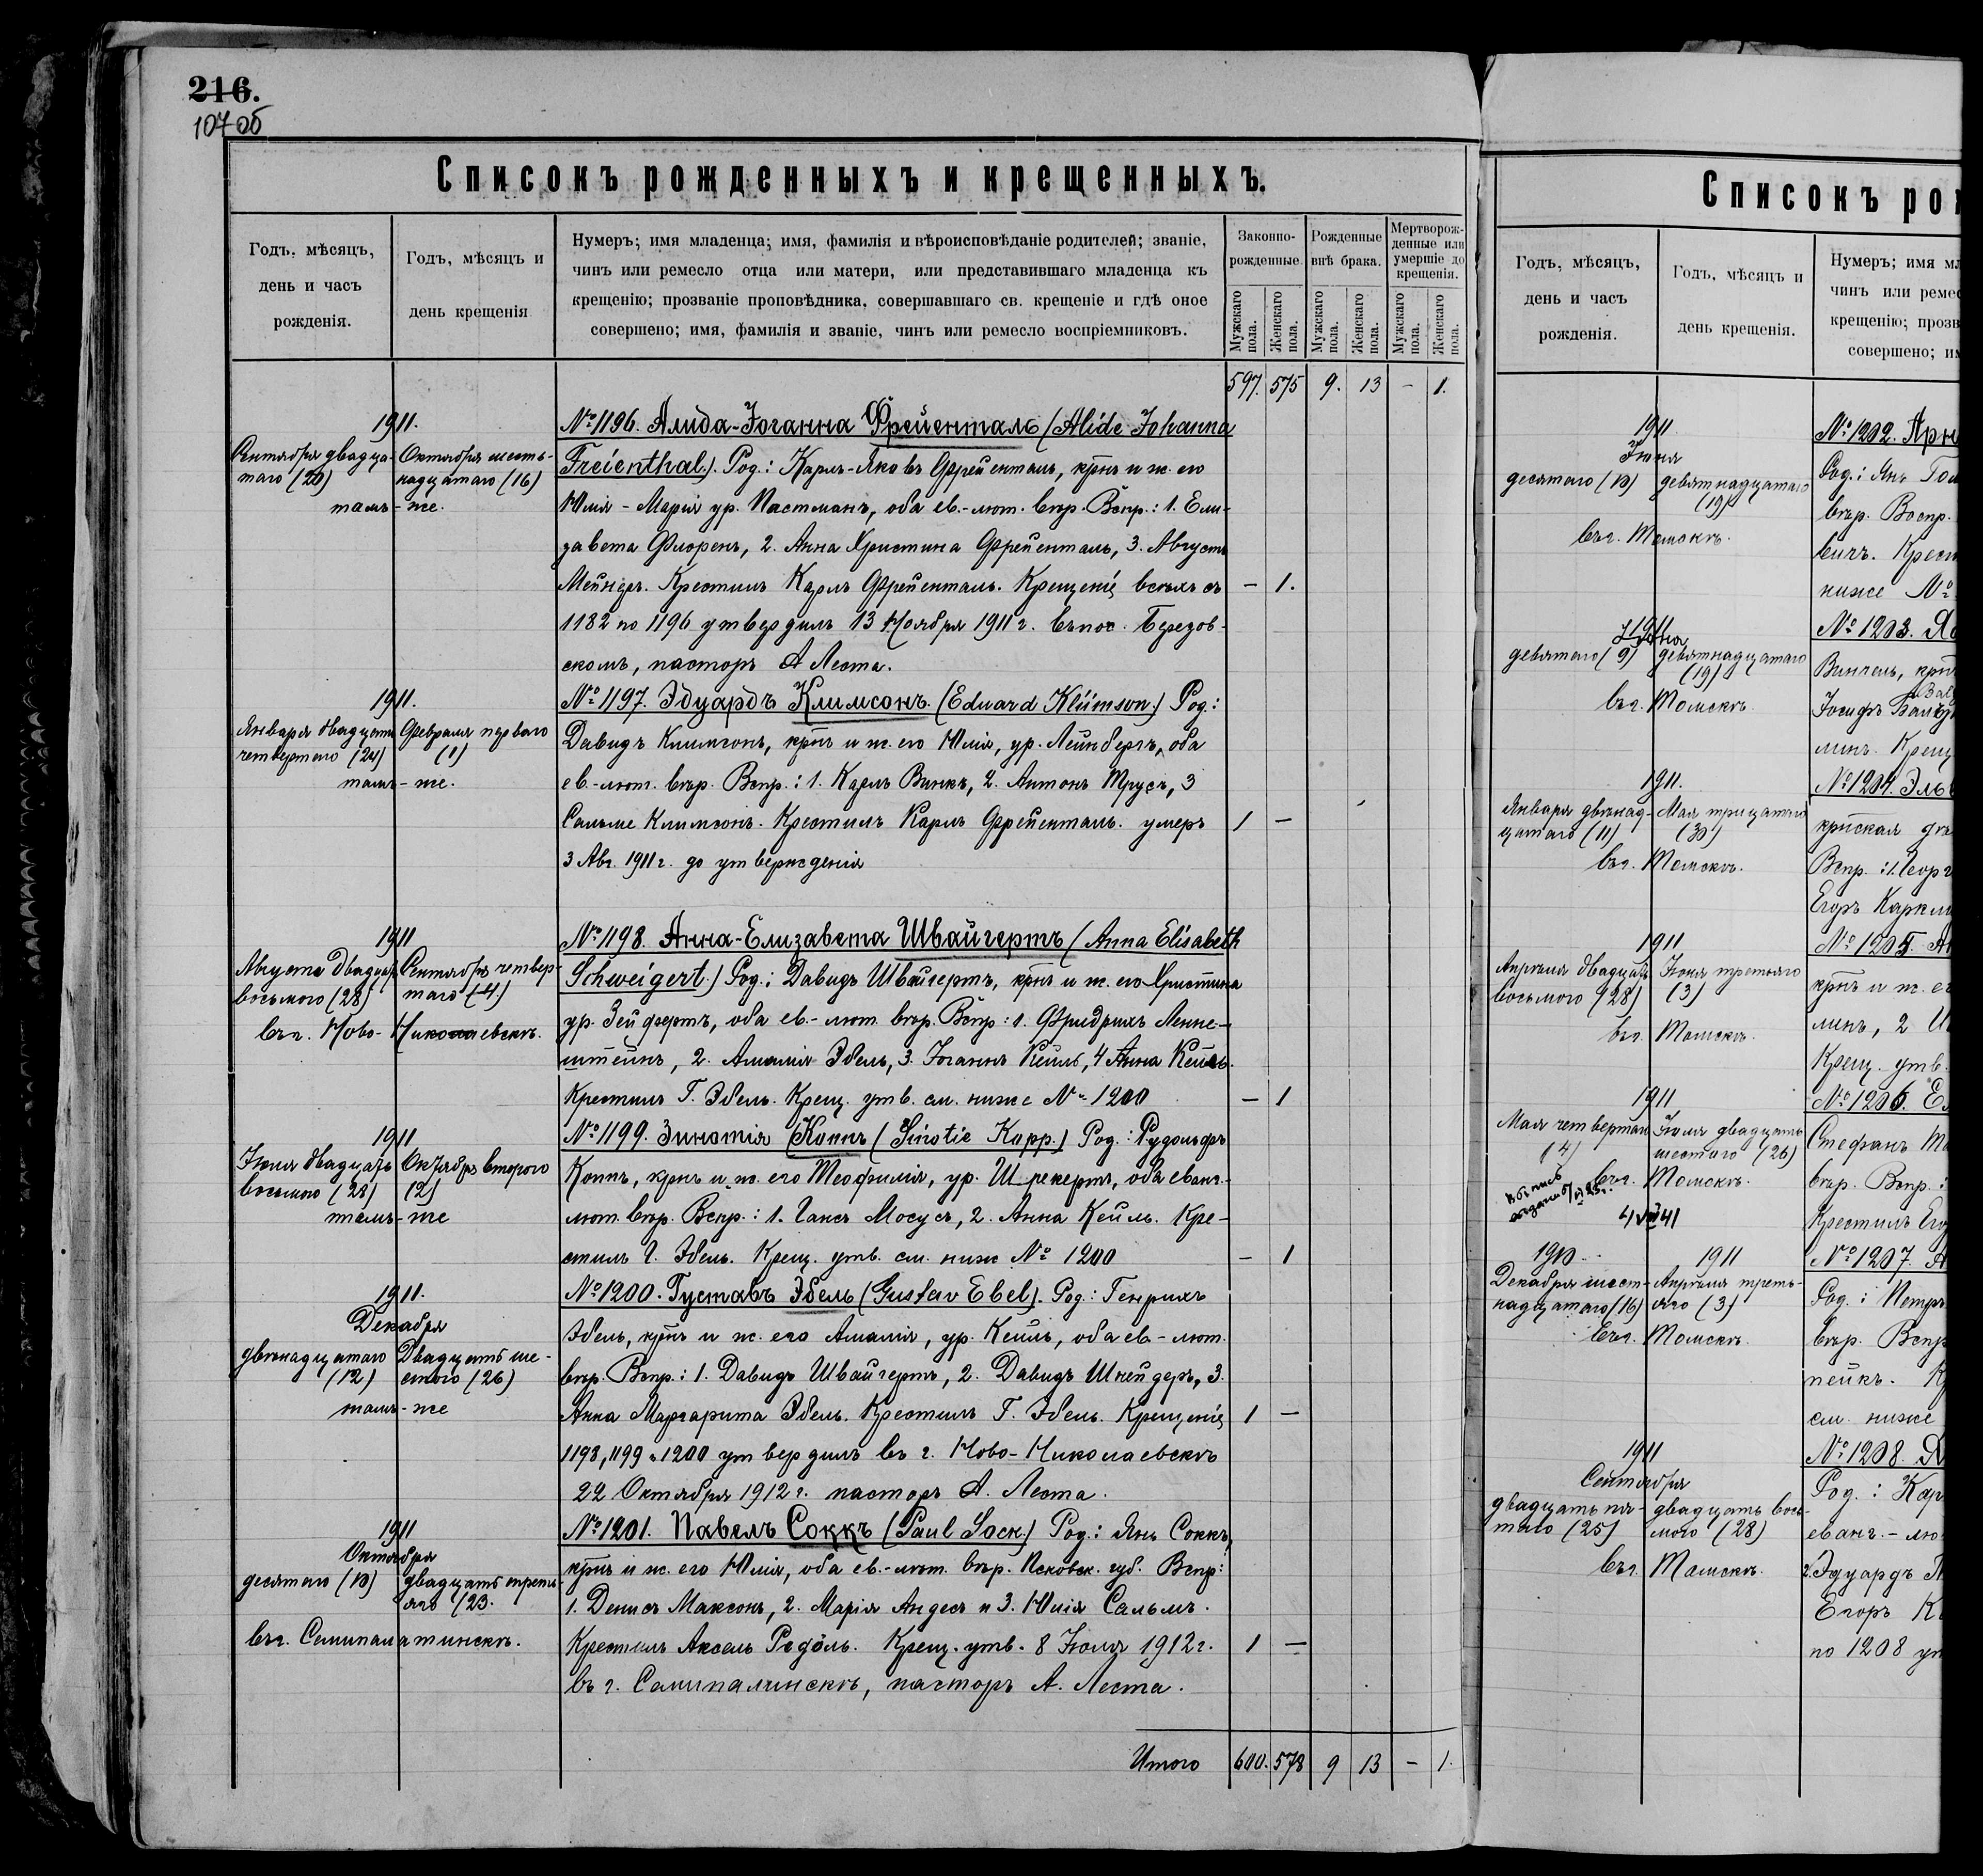 216.
107 об
Списокъ рожденныхъ и крещенныхъ.
Годъ, мѣсяцъ, день и часъ рожденія.
Годъ, мѣсяцъ и день крещенія
Нумеръ; имя младенца; имя, фамилія и вѣроисповѣданіе родителей; званіе,
чинъ или ремесло отца или матери, или представившаго младенца къ
крещенію; прозваніе проповѣдника, совершавшаго св. крещеніе и гдѣ оное
совершено; имя, фамилія и званіе, чинъ или ремесло воспріемниковъ.
Законно-рожденные.
Рожденные внѣ брака.
Мертворож-денные или умершіе до крещенія.
Мужскаго пола.
Женскаго пола.
Мужскаго пола.
Женскаго пола.
Мужскаго пола.
Женскаго пола.
597. 575 9. 13 - 1.
1911.
Сентября двадца-
таго (20)
Октября шест-
надцатаго (16)
тамъ-же.
№ 1196. Алида-Іоганна Фрейенталь (Alide Johanna
Freienthal.) Род.: Карлъ-Яковъ Фрейенталь, крнъ и ж. его
Юлія-Марія ур. Пастманъ, оба ев.-лют. вѣр. Вспр.: 1. Ели-
завета Флоренъ, 2. Анна Христина Фрейенталь, 3. Августъ
Мейнеръ. Крестилъ Карлъ Фрейенталь. Крещенія всѣхъ съ - 1.
1182 по 1196 утвердилъ 13 Ноября 1911 г. въ пос. Березов-
скомъ, пасторъ А Леста.
1911.
Января двадцать
четвертаго (24)
Февраля перваго
(1)
тамъ-же.
№ 1197. Эдуардъ Климсонъ. (Eduard Klümson.) Род.:
Давидъ Климсонъ, крнъ и ж. его Юлія, ур. Лейнбергъ, оба
ев.-лют. вѣр. Вспр.: 1. Карлъ Винкъ, 2. Антонъ Трусъ, 3
Сальме Климсонъ. Крестилъ Карлъ Фрейенталь. умеръ 1 -
3 Авг. 1911 г. до утвержденія
1911
Августа двадцать
восьмого (28)
Сентября четвер-
таго (4.)
въ г. Ново-Николаевскѣ.
№ 1198. Анна-Елизавета Швайгертъ (Anna Elisabeth
Schweigert.) Род.: Давидъ Швайгертъ, крнъ и ж. его Христина
ур. Зейфертъ, оба ев.-лют. вѣр. Вспр: 1. Фридрихъ Ленне-
штейнъ, 2. Амалія Эбель, 3. Іоганнъ Кейль, 4 Анна Кейль.
Крестилъ Г. Эбель. Крещ. утв. см. ниже № 1200 - 1
1911
Іюня двадцать
восьмого (28)
Октября второго
(2)
тамъ-же
№ 1199. Зинотія Коппъ (Sinotie Kopp.) Род.: Рудольфъ
Коппъ, крнъ и ж. его Теофилія, ур. Шрекертъ, оба еванг.-
лют. вѣр. Вспр.: 1. Гансъ Мосусъ, 2. Анна Кейль. Кре-
стилъ Г. Эбель. Крещ. утв. см. ниж № 1200 - 1
1911.
Декабря
двѣнадцатаго
(12)
Двадцать ше-
стого (26)
тамъ-же
№ 1200. Густавъ Эбель (Gustav Ebel). Род: Генрихъ
Эбель, крнъ и ж. его Амалія, ур. Кейль, оба ев-лют.
вѣр. Вспр.: 1. Давидъ Швайгертъ, 2. Давидъ Шнейдеръ, 3.
Анна Маргарита Эбель. Крестилъ Г. Эбель. Крещенія 1 -
1198, 1199 и 1200 утвердилъ въ г. Ново-Николаевскѣ
22 Октября 1912 г. пасторъ А. Леста.
1911
Октября
десятаго (10)
двадцать треть-
яго (23.
въ г. Семипалатинскѣ.
№ 1201. Павелъ Соккъ (Paul Sock.) Род.: Янъ Соккъ,
крнъ и ж. его Юлія, оба ев.-лют. вѣр. Псковск. губ. Вспр:
1. Денисъ Максонъ, 2. Марія Андесъ и 3. Юлія Сальмъ.
Крестилъ Аксель Редоль. Крещ. утв. 8 Іюля 1912 г. 1 -
въ г. Семипалатинскѣ, пасторъ А. Леста.
Итого 600. 578 9 13 - 1.
Списокъ рож
Годъ, мѣсяцъ, день и часъ рожденія.
Годъ, мѣсяцъ и день крещенія.
Нумеръ; имя мл
чинъ или ремес
крещенію; прозв
совершено; им
1911.
Іюня
десятаго (10)
девятнадцатаго
(19)
въ г. Томскѣ.
№ 1202. Арн
Род.: Янъ Гол
вѣр. Воспр.
вичъ. Крест
ниже №
1911
Іюня
девятаго (9)
девятнадцатаго
(19)
въ г. Томскѣ.
№ 1203. Яс
Винтель, крн
линъ. Крещ
1911.
Января двѣнад-
цатаго (11)
Мая трицатаго
(30)
въ г. Томскѣ.
№ 1204. Эльв
крнская дѣв
Вспр.: 1. Георг
Егоръ Карклин
1911
Апрѣля двадцать
восьмого (28)
Іюня третьяго
(3)
въ г. Томскѣ.
№ 1205. Ан
крнъ и ж. ег
линъ, 2 И
Крещ. утв.
1911
Мая четвертаго
(4)
Іюля двадцать
шестого (26)
въ г. Томскѣ.
№ 1206. Ел
Стефанъ
вѣр. Вспр.:
Крестилъ Его
1910
1911
Декабря шест-
надцатаго (16)
Апрѣля треть-
яго (3)
въ г. Томскѣ.
№ 1207. А
Род.: Петръ
вѣр. Вспр
пейкъ. К
см. ниже
1911
Сентября
двадцать пя-
таго (25)
двадцать вось-
мого (28)
въ г. Томскѣ.
№ 1208.
Род.: Кар
еванг.-лю
2. Эдуардъ
Егоръ К
по 1208 ут